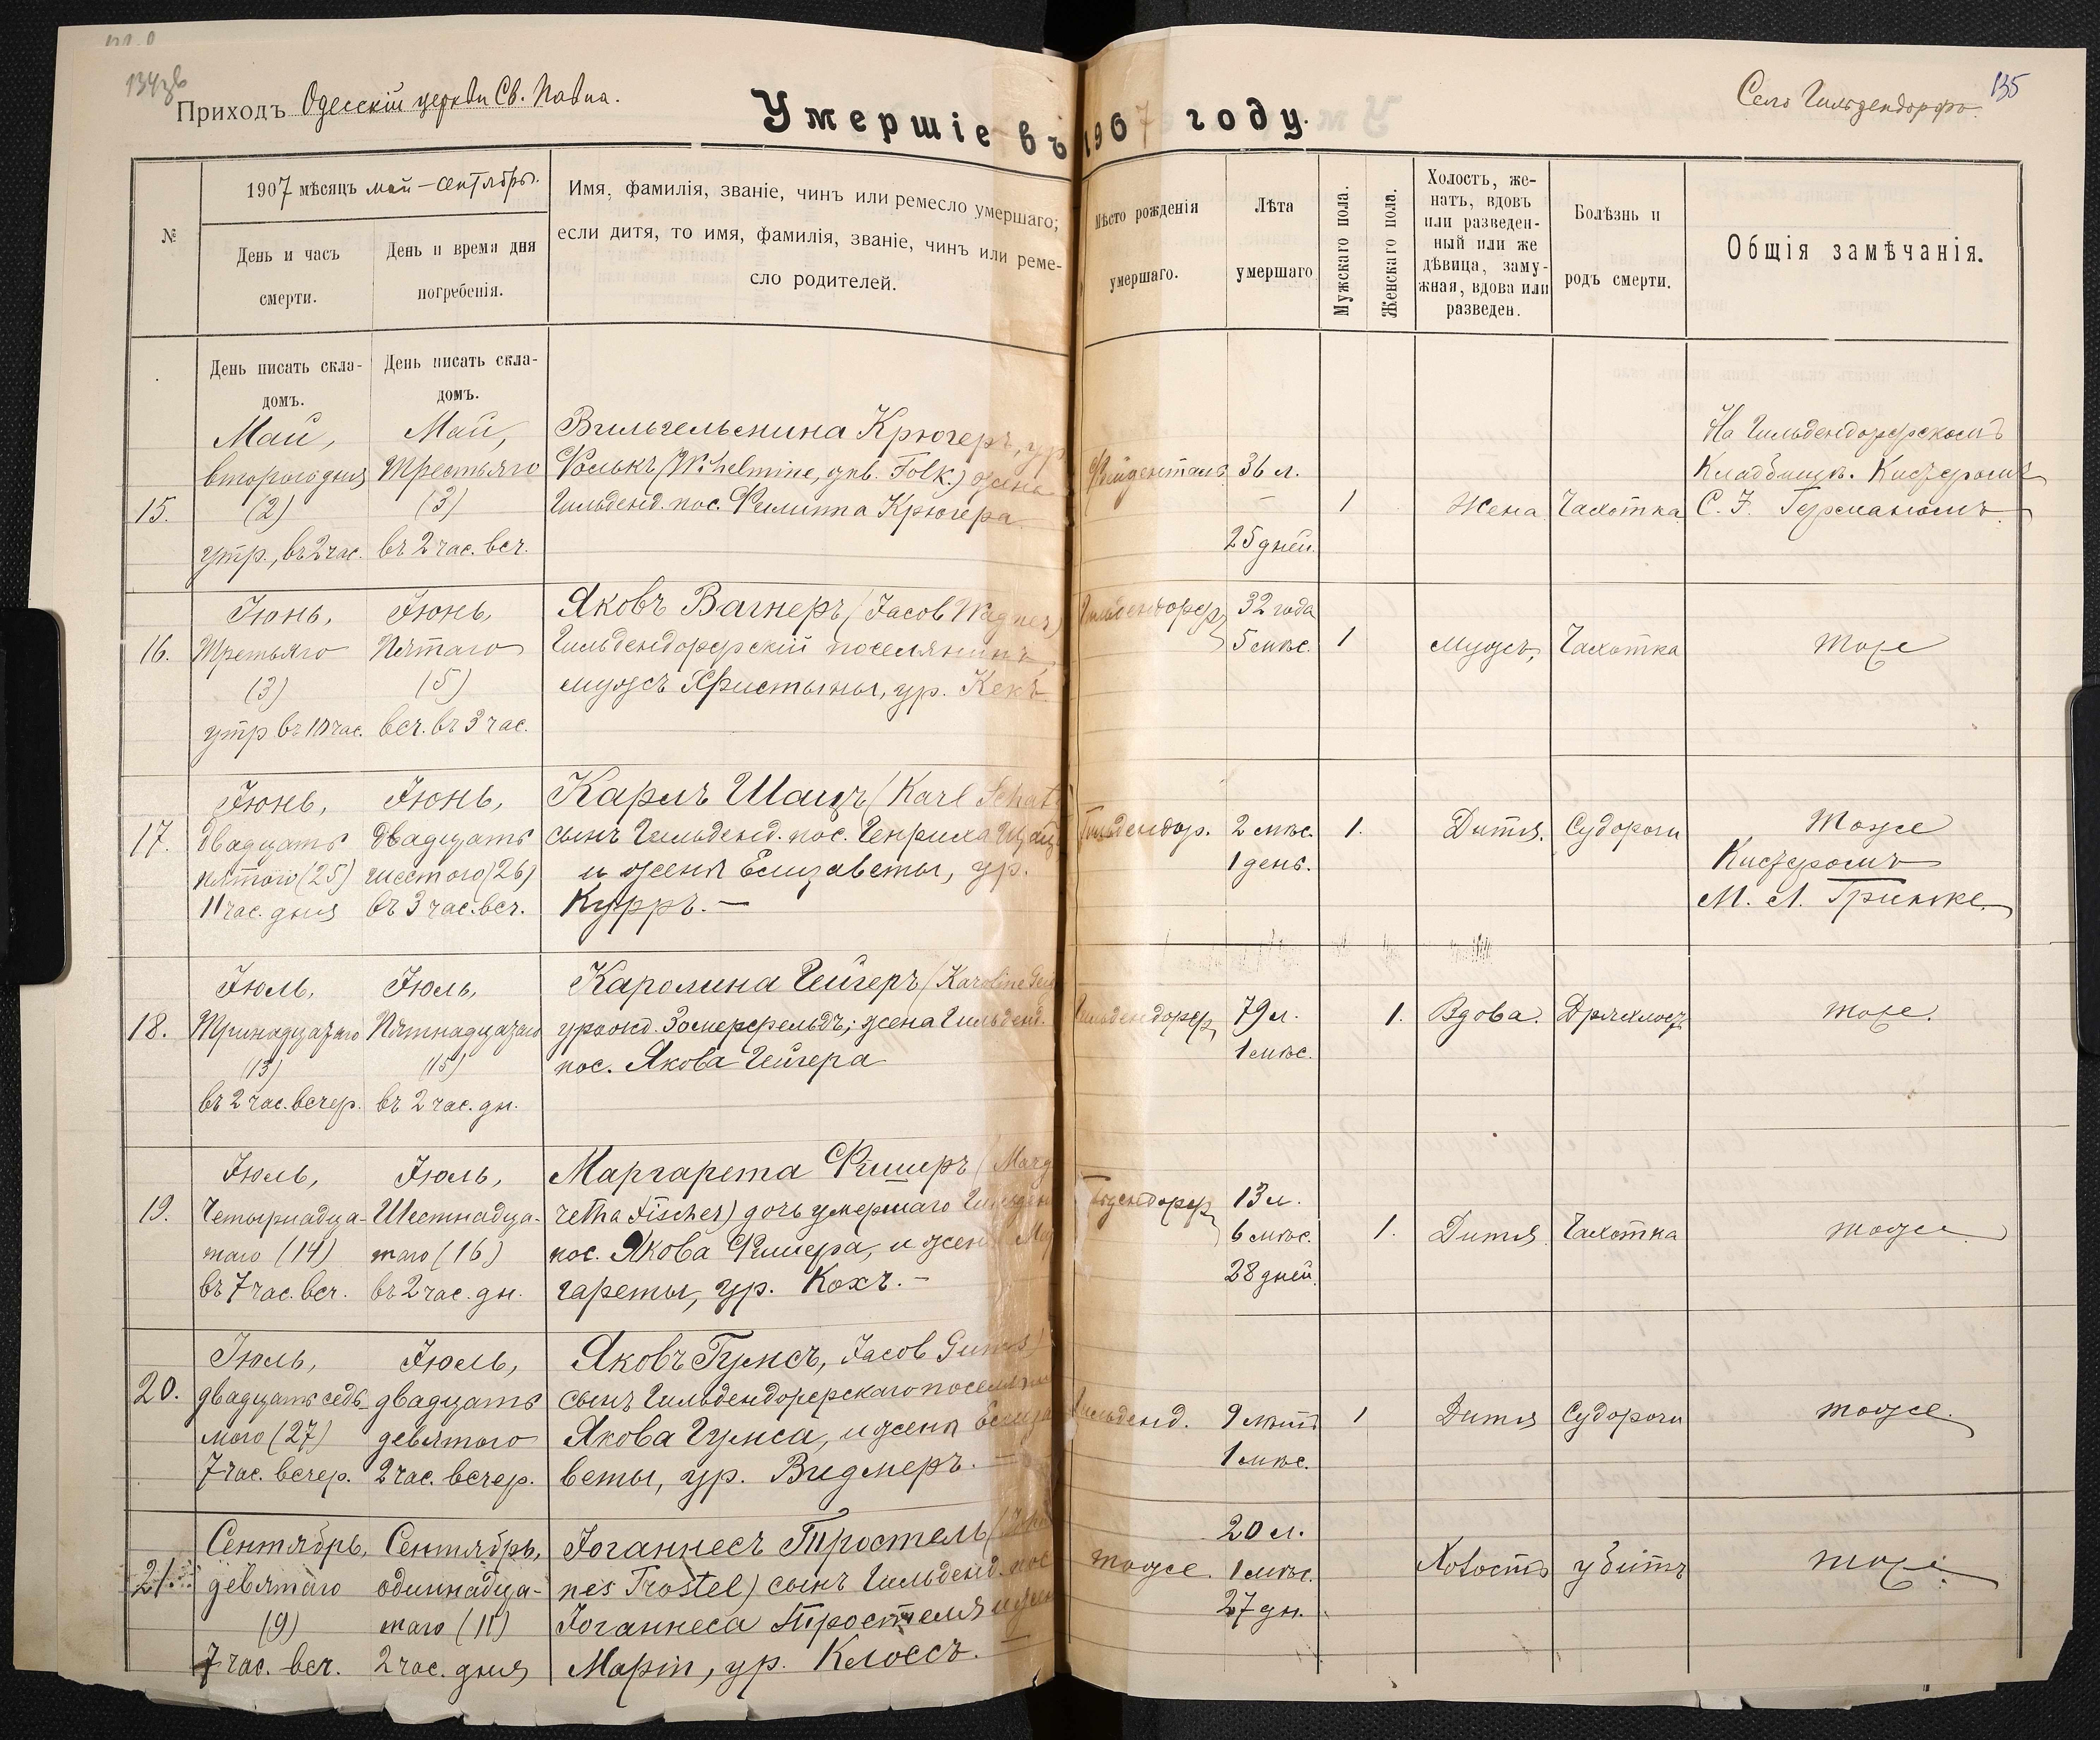 134об
135
Приходъ Одесскій церкви Св. Павла.
Село Гильдендорфъ.
Умершіе въ 1907 году.
№
1907 мѣсяцъ май – сентябрь.
День и часъ смерти.
День и время дня погребенія.
Имя, фамилія, званіе, чинъ или ремесло умершаго;
если дитя, то имя, фамилія, званіе, чинъ или реме-
сло родителей.
Мѣсто рожденія умершаго.
Лѣта умершаго
Мужскаго пола.
Женскаго пола.
Холостъ, же-
натъ, вдовъ
или разведен-
ный или же
дѣвица, заму-
жная, вдова или
разведен.
Болѣзнь и родъ смерти.
Общія замѣчанія.
День писать скла-
домъ.
День писать скла-
домъ.
15.
Май,
второго дня
(2)
утр., въ 2 час.
Май,
Третьяго
(3)
въ 2 час. веч.
Вильгельмина Крюгеръ, ур
Фолькъ (Wihelmine, gnb. Folk.) жена
Гильденд. пос. Филиппа Крюгера
Фрейденталь
36 л.
–
25 дней.
1
Жена
Чахотка
На Гильдендорфскомъ
Кладбищѣ. Кистеромъ
С. F. Германомъ
16.
Іюнь,
Третьяго
(3)
утр въ 10 час.
Іюнь,
Пятаго
(5)
веч. въ 3 час.
Яковъ Вагнеръ (Jacob Wagner)
Гильдендорфскій поселянинъ,
мужъ Христины, ур. Кекъ
Гильдендорф
32 года
5 мѣс.
1
Мужъ,
Чахотка
Тоже
17.
Іюнь,
двадцать
пятого (25)
11 час. дня
Іюнь,
двадцать
шестого (26)
въ 3 час. веч.
Карлъ Шацъ (Karl Schatz
сынъ Гильденд. пос. Генриха Шац
и жены Елизаветы, ур.
Курръ. –
Гильдендор.
2 мѣс.
1 день.
1.
Дитя.
Судороги
Тоже
Кистеромъ
М. Л. Гринке
18.
Іюль,
Тринадцатаго
(13)
въ 2 час. вечер.
Іюль,
Пятнадцатаго
(15)
въ 2 час. дн.
Каролина Гейгеръ (Karoline Gei
урожд. Зомерфельдъ; жена Гильденд.
пос. Якова Гейгера
Гильдендорф
79 л.
1 мѣс.
1.
Вдова.
Дряхлост.
тоже.
19.
Іюль,
Четырнадца-
таго (14)
въ 7 час. веч.
Іюль,
Шестнадца-
таго (16)
въ 2 час. дн.
Маргарета Фишеръ (Marg
retha Fischer) дочь умершаго Гильден
пос. Якова Фишера, и жены Мар
гареты, ур. Кохъ. –
13 л.
6 мѣс.
28 дней.
1.
Дитя
Чахотка
тоже
20.
Іюль,
двадцать седь-
мого (27)
7 час. вечер.
Іюль,
двадцать
девятого
2 час. вечер.
Яковъ Гумсъ, Jacob Gums)
сынъ Гильдендорфскаго поселян
Якова Гумса, и жены Елиза
веты, ур. Видмеръ. –
Гильденд.
9 лѣтъ
1 мѣс.
1
Дитя
Судороги
тоже.
21.
Сентябрь,
девятаго
(9)
7 час. веч.
Сентябрь,
одиннадца-
таго (11)
2 час. дня
Іоганнесъ Тростель (Joha
nes Trostel) сынъ Гильденд. пос
Іоганнеса Тростеля и жен
Маріи, ур. Клоссъ. –
тоже.
20 л.
1 мѣс.
27 дн.
Холостъ
убитъ
тоже